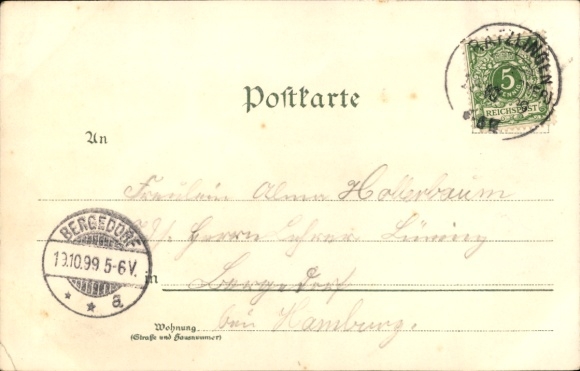 RÄTZLINGEN
5
REICHSPOST
Postkarte
An
Fräulein Alma Hollerbaum
Herrn Lehrer Lüning
BERGEDORF
19.10.99 5-6V.
* * a
in Bergedorf
bei Hamburg.
Wohnung
(Straße und Hausnummer)